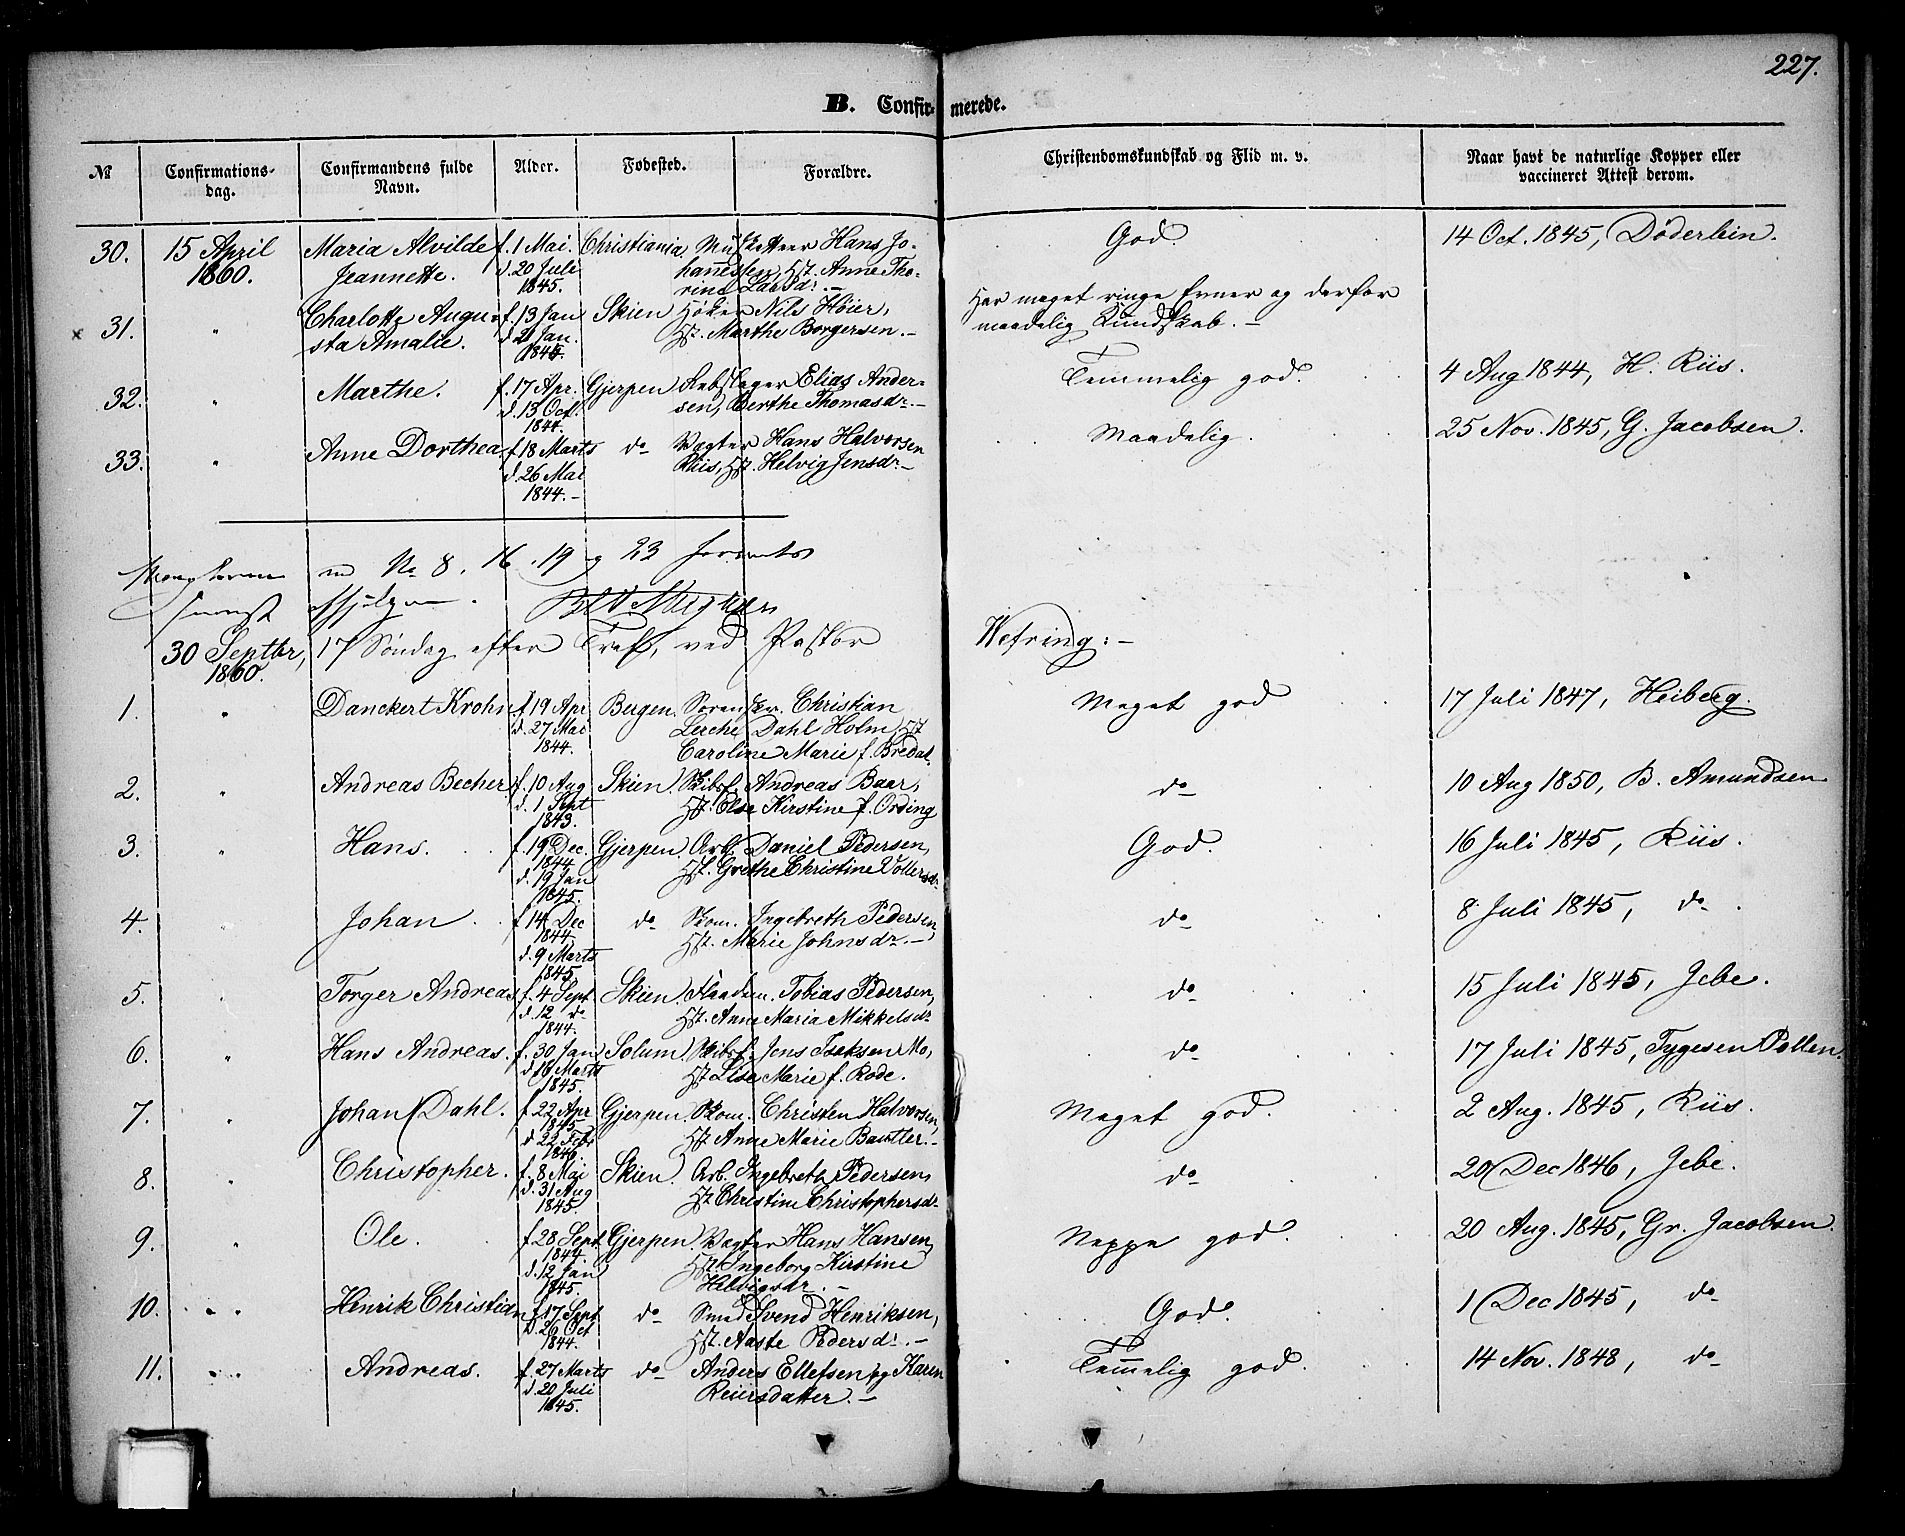 227.
B. Confirmerede.
№ Confirmations-dag. Confirmandens fulde Navn. Alder. Fødested. Forældre. Christendomskundskab og Flid m. v. Naar havt de naturlige Kopper eller vaccineret Attest derom.
30. 15 April Maria Alvilde f. 1 Mai Christiania. Musketteer Hans Jo- God 14 Oct. 1845, Døderlein.
1860. Jeannette. d. 20 Juli hannessen, Hst. Anne Tho-
1845. rine Larsdr. –
x 31. " Charlotte Augu- f. 13 Jan Skien Høker Nils Höier, Har meget ringe Evner og derfor
sta Amalie. d. 21 Jan. Hst. Marthe Borgersen. – maadelig Kundskab. –
32. " Marthe. f. 17 Apr. Gjerpen Rebslager Elias Ander- Temmelig god. 4 Aug 1844, H. Riis.
d. 13 Oct. sen, Berthe Thomasdr. –
1844.
33. " Anne Dorthea f. 18 Marts do Vægter Hans Halvorsen Maadelig. 25 Nov. 1845, G. Jacobsen.
d. 26 Mai Riis, Hst. Helvig Jensdr –
1844. –
No 8, 16, 19 og 23
30 Septbr, 17 Søndag efter Tref, ved Pastor Wefring: –
1860.
1. " Danckert Krohn f. 19 Apr Bergen. Sorenskr. Christian Meget god 17 Juli 1847, Heiberg.
d. 27 Mai Lerche Dahl Holm, Hst
1844. Caroline Marie f. Bredal.
2. " Andreas Becher f. 10 Aug Skien. Skibsf. Andreas Baar, do 10 Aug 1850, B. Amundsen
d. 1 Sept Hst. Else Kirstine f. Ording
1843.
3. " Hans. f. 19 Dec. Gjerpen. Arb. Daniel Pedersen, God. 16 Juli 1845, Riis.
1844 Hst. Grethe Christine Vollersdr
d. 19 Jan
1845.
4. " Johan f. 14 Dec do Skom. Ingebreth Pedersen, do 8 Juli 1845, do
1844 Hst. Marie Johnsdr. –
d. 9 Marts
1845.
5. " Torger Andreas f. 4 Sept Skien. Tobias Pedersen, do 15 Juli 1845, Jebe.
d. 12 do Hst. Anne Maria Mikkelsdr
1844.
6. " Hans Andreas. f. 30 Jan Solum. Skibsf. Jens Isaksen Mo, do 17 Juli 1845, Tygesen Pollen.
d. 18 Marts Hst Lise Marie f. Rode.
1845.
7. " Johan Dahl. f. 22 Apr Gjerpen. Skom. Christen Halvorsen, Meget god. 2 Aug. 1845, Riis.
1845 Hst. Anne Marie Bautler. –
d 22 Febr
1846
8. " Christopher. f. 8 Mai Skien. Arb. Ingebreth Pedersen, do 20 Dec 1846, Jebe.
d. 31 Aug Hst Christine Christophersdr
1845.
9. " Ole. f. 28 Sept Gjerpen. Vægter Hans Hansen, Neppe god. 20 Aug. 1845, Gr. Jacobsen.
1844 Hst. Ingeborg Kirstine
d. 12 Jan Helvigsdr. –
1845.
10. " " Henrik Christian f. 17 Sept do Smed Svend Henriksen, God. 1 Dec 1845, do
D. 26 Oct Hst. Aaste Pedersdr. –
1844.
11. " " Andreas. f. 27 Marts do Anders Ellefsen og Karen Temmelig god. 14 Nov. 1848, do
d. 20 Juli Reiersdatter. –
1845.